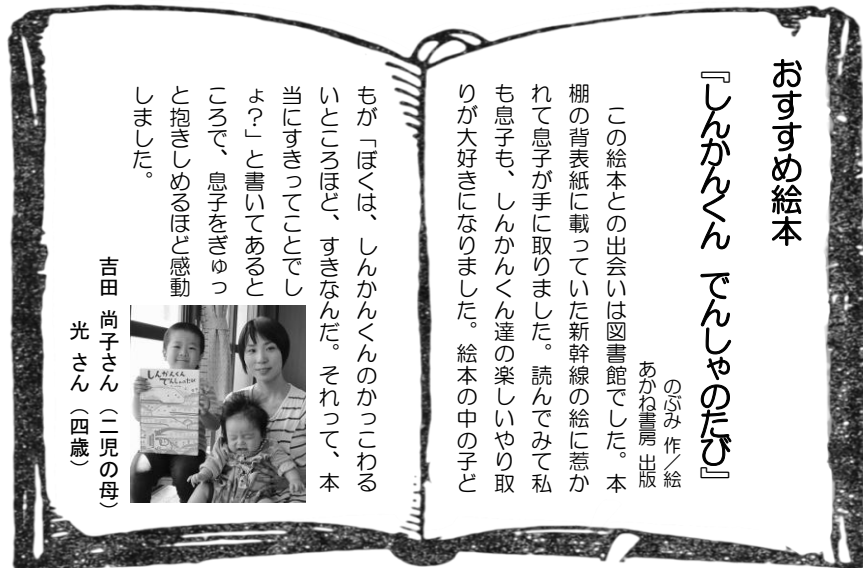 おすすめ絵本
『しんかんくん でんしゃのたび』
のぶみ 作／絵
あかね書房 出版
この絵本との出会いは図書館でした。本
棚の背表紙に載っていた新幹線の絵に惹か
れて息子が手に取りました。読んでみて私
も息子も、しんかんくん達の楽しいやり取
りが大好きになりました。絵本の中の子ど
もが「ぼくは、しんかんくんのかっこわる
いところほど、すきなんだ。それって、本
当にすきってことでし
ょ？」と書いてあると
ころで、息子をぎゅっ
と抱きしめるほど感動
しました。
しんかんくん
でんしゃのたび
吉田 尚子さん（二児の母）
光 さん（四歳）